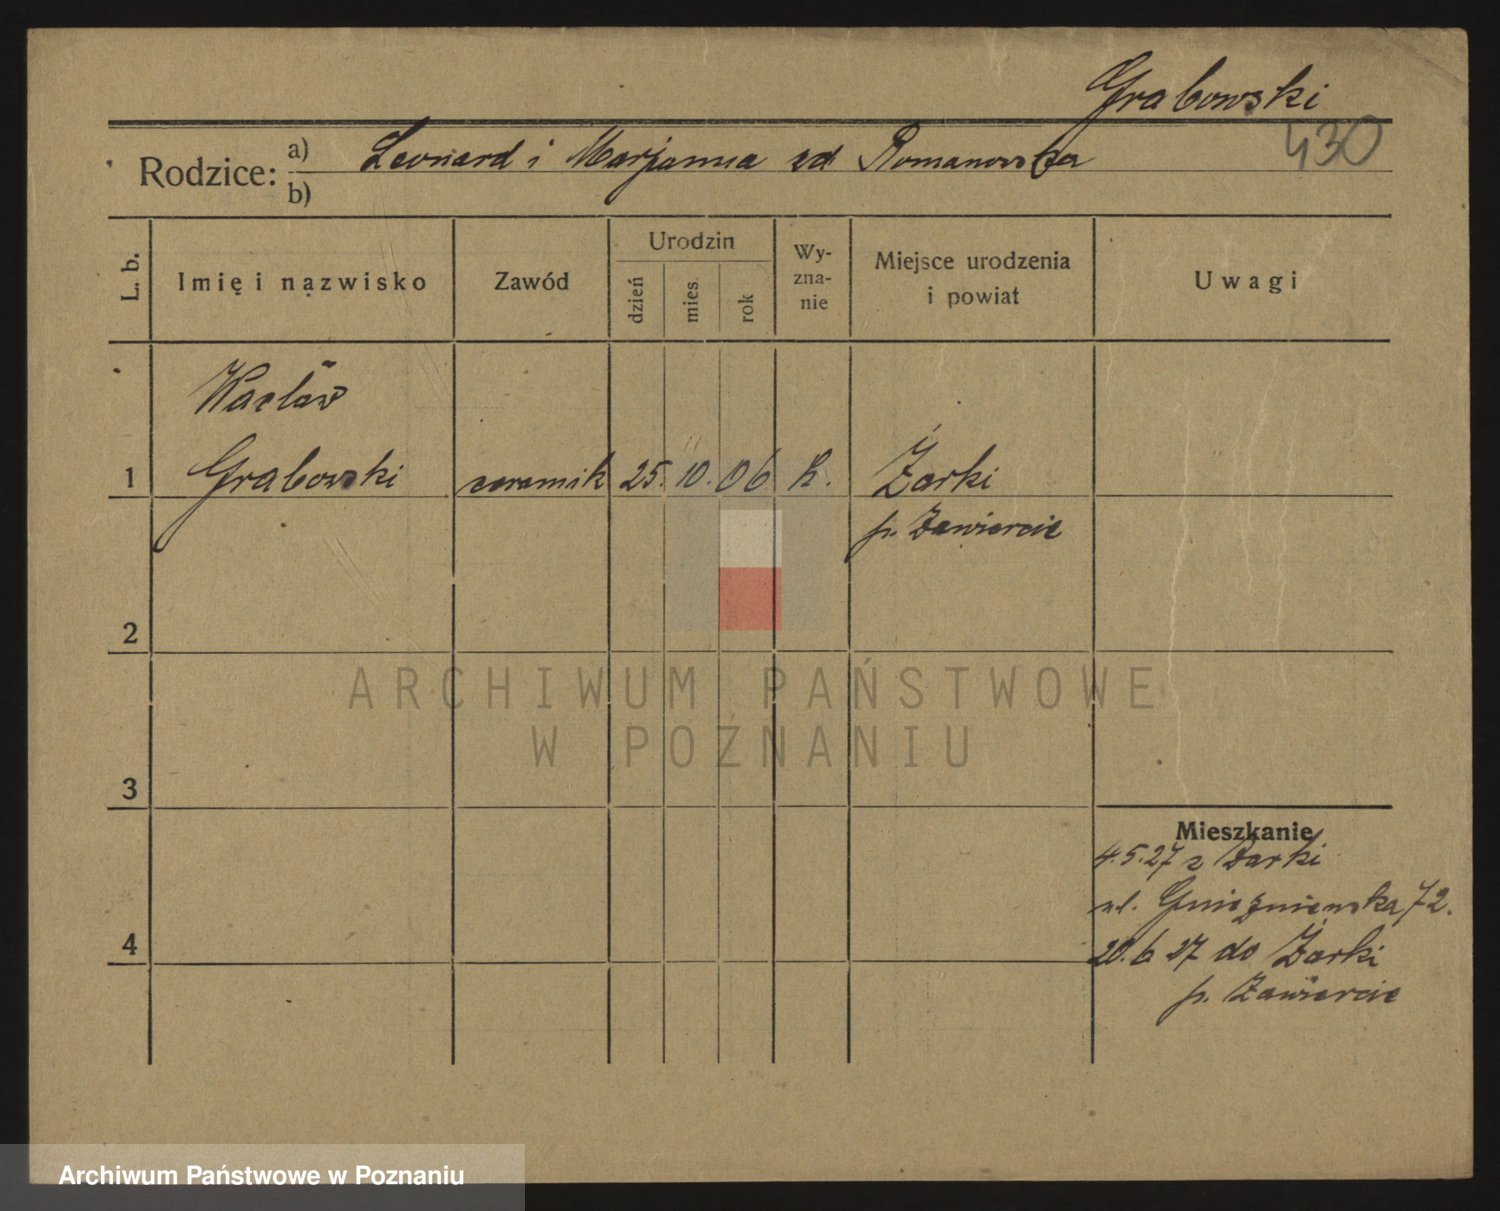 Grabowski
430
Rodzice: a) Leonard i Marjanna zd Romanowska
b)
L. b.
Imię i nazwisko
Zawód
Urodzin
dzień
mies.
rok
Wy-
zna-
nie
Miejsce urodzenia
i powiat
Uwagi
Wacław
1 Grabowski ceramik 25. 10. 06 k. Żarki
p. Zawiercie
2
3
4
Mieszkanie
4.5.27 z Żarki
ul. Gnieźnieńska 72.
20.6 27 do Żarki
p. Zawiercie
ARCHIWUM PAŃSTWOWE
W POZNANIU
Archiwum Państwowe w Poznaniu